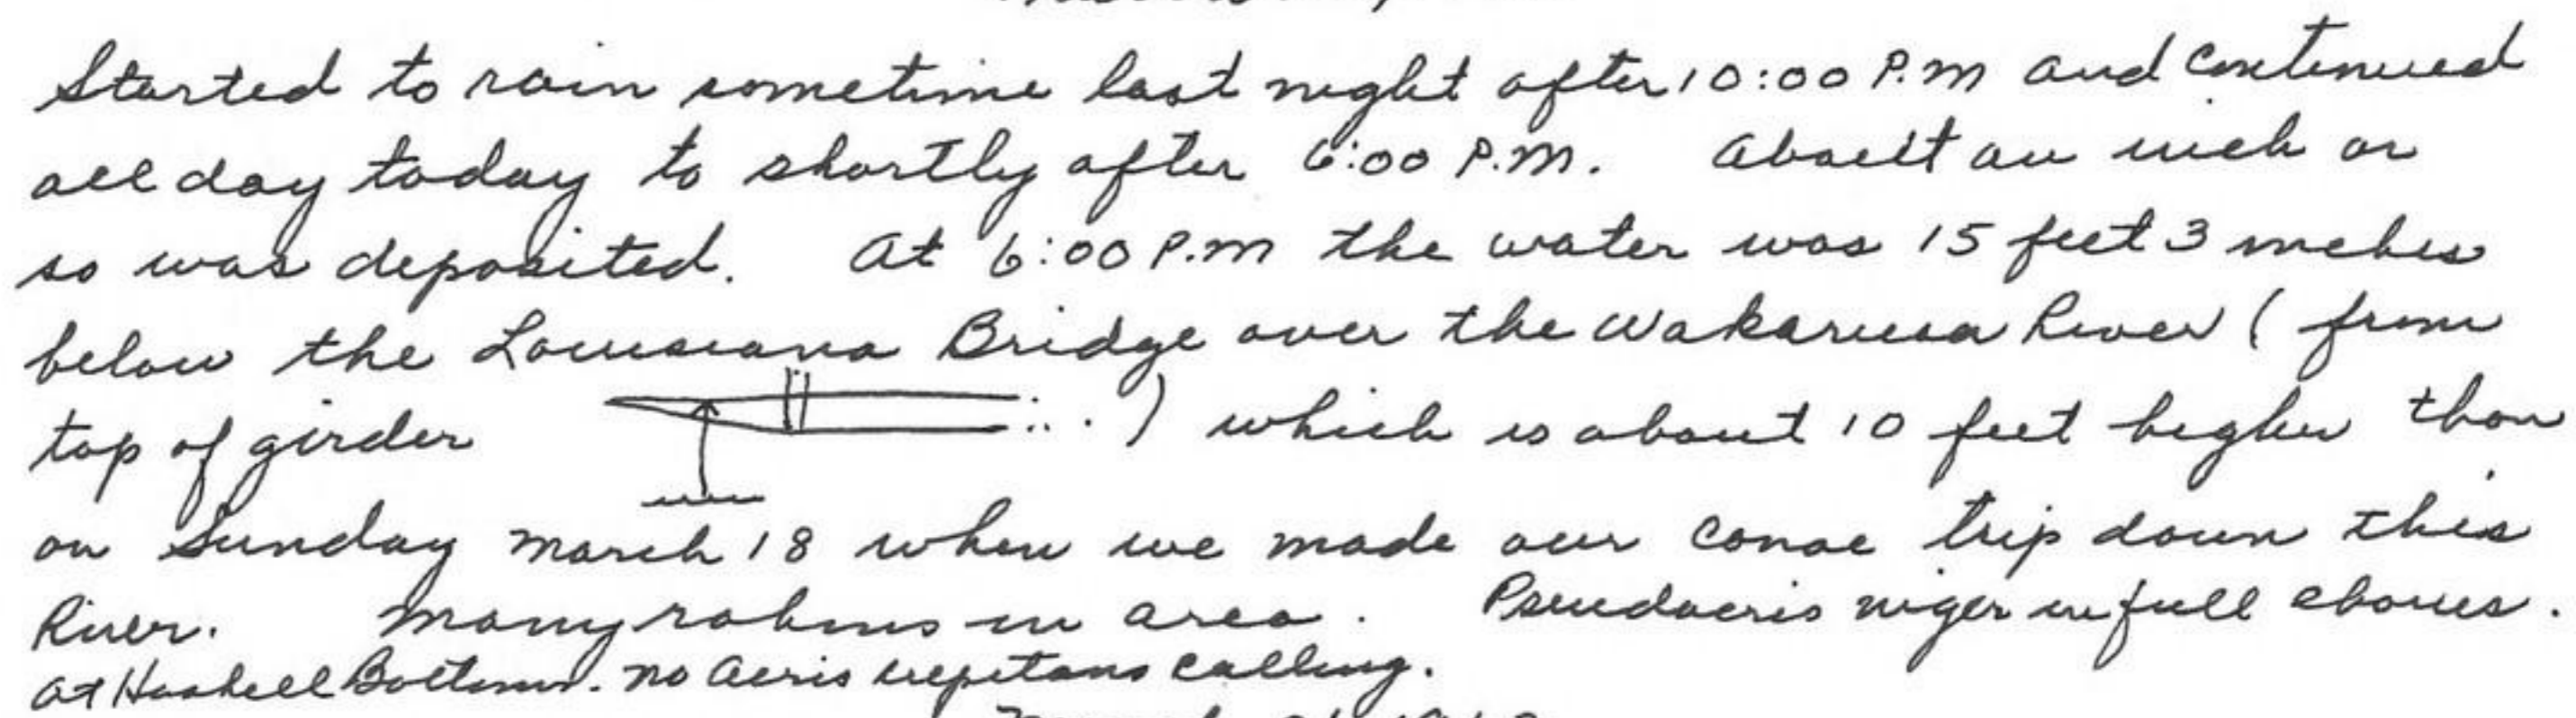 Started to rain sometime last night after 10:00 P.M and continued
all day today to shortly after 6:00 P.M. About an inch or
so was deposited. At 6:00 P.M the water was 15 feet 3 inches
below the Louisiana Bridge over the Wakarusa River ( from
top of girder ... ) which is about 10 feet higher than
on Sunday March 18 when we made our canoe trip down this
River. Many robins in area. Pseudacris niger in full chorus.
At Haskell Bottoms. No Acris crepitans calling.